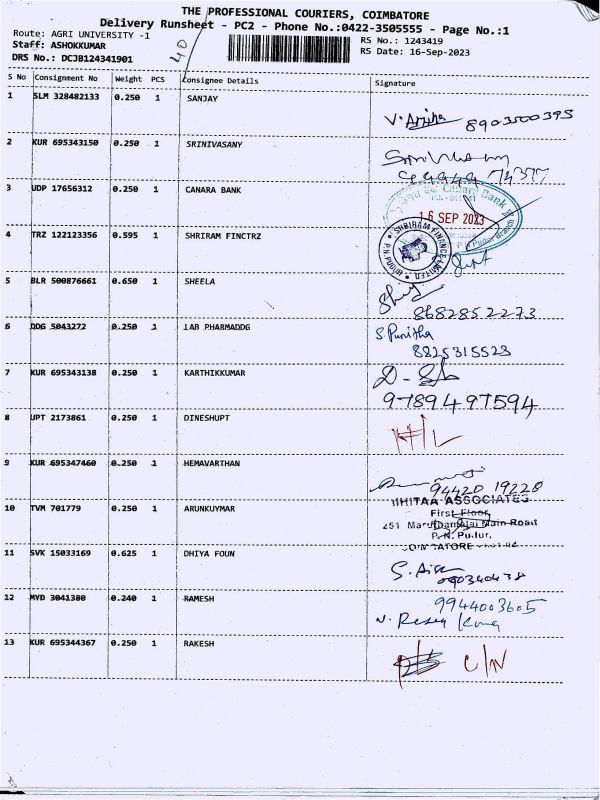 THE PROFESSIONAL COURIERS, COIMBATORE
Delivery Runsheet - PC2 - Phone No.:0422-3505555 - Page No.:1
Route: AGRI UNIVERSITY -1
RS No.: 1243419
Staff: ASHOKKUMAR
RS Date: 16-Sep-2023
DRS No.: DCJB124341901
40
S No Consignment No Weight PCS Consignee Details Signature
1 SLM 328482133 0.250 1 SANJAY
8903500395
2 KUR 695343150 0.250 1 SRINIVASANY
3 UDP 17656312 0.250 1 CANARA BANK
Canara Bank
16 SEP 2023
4 TRZ 122123356 0.595 1 SHRIRAM FINCTRZ
SHRIRAM FINANCE LIMITED
P.N.PUDUR
5 BLR 500876661 0.650 1 SHEELA
8682852273
6 DDG 5043272 0.250 1 LAB PHARMADDG
S. Punitha
8825315523
7 KUR 695343138 0.250 1 KARTHIKKUMAR
9789497594
8 UPT 2173861 0.250 1 DINESHUPT
9 KUR 695347460 0.250 1 HEMAVARTHAN
94420 19228
10 TVM 701779 0.250 1 ARUNKUYMAR
ASSOCIATES
First Floor,
Main Road
P. N. Pudur,
11 SVK 15033169 0.625 1 DHIYA FOUN
12 MYD 3041380 0.240 1 RAMESH
9944003605
13 KUR 695344367 0.250 1 RAKESH
C/N